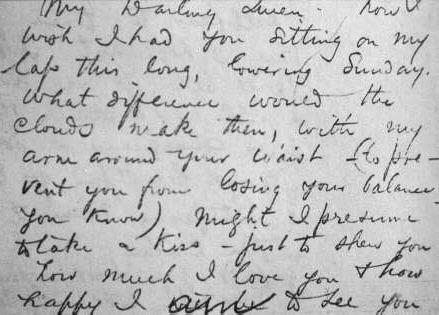 My Darling Queen - how I
wish I had you sitting on my
lap this long, lowering Sunday.
What difference would the
clouds make then, with my
arm around your waist - (to pre-
vent you from losing your balance
you know) Might I presume
to take a kiss - just to shew you
how much I love you & how
happy I to see you